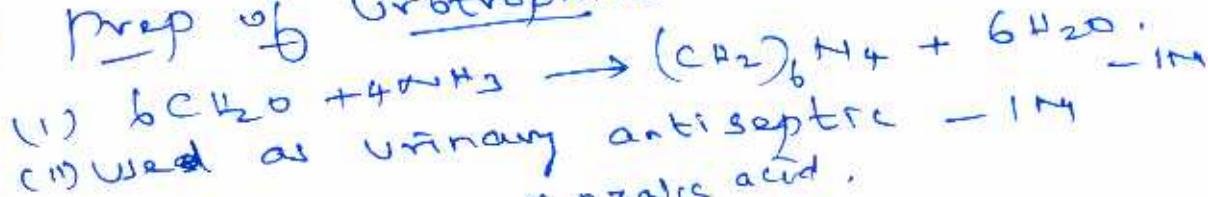 Prep of Urotrop
(i) 6CH₂O + 4NH₃ → (CH₂)₆N₄ + 6H₂O. - 1M
(ii) used as urinary antiseptic - 1M
oxalic acid.